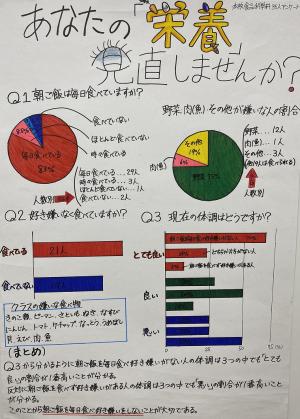 あなたの「栄養」
見直しませんか?
Q1 朝ご飯は毎日食べていますか?
食べていない
ほとんど食べていない
時々食べている
毎日食べている
83%
毎日食べている…29人
時々食べている…3人
ほとんど食べていない…1人
食べていない…2人
人数別
野菜、肉(魚)、その他が嫌いな人の割合
その他
19%
肉(魚)
6%
野菜 75%
野菜…12人
肉(魚)…1人
その他…3人
人数別
Q2 好き嫌いなく食べていますか?
食べている
21人
食べていない
Q3 現在の体調はどうですか?
とても良い
良い
悪い
クラスの嫌いな食べ物
きのこ類、ピーマン、さといも、ねぎ、なすび
にんじん、トマト、ケチャップ、なっとう、うめぼし
貝、えび、肉、魚
(まとめ)
Q3から分かるように朝ご飯を毎日食べ好き嫌いがない人の体調は3つの中でも"とても
良い"の割合が1番高いことが分かる。
反対に朝ご飯を食べず好き嫌いがある人の体調は3つの中でも"悪い"の割合が1番高いこと
が分かる。
このことから朝ご飯を毎日食べ好き嫌いをしないことが大切である。